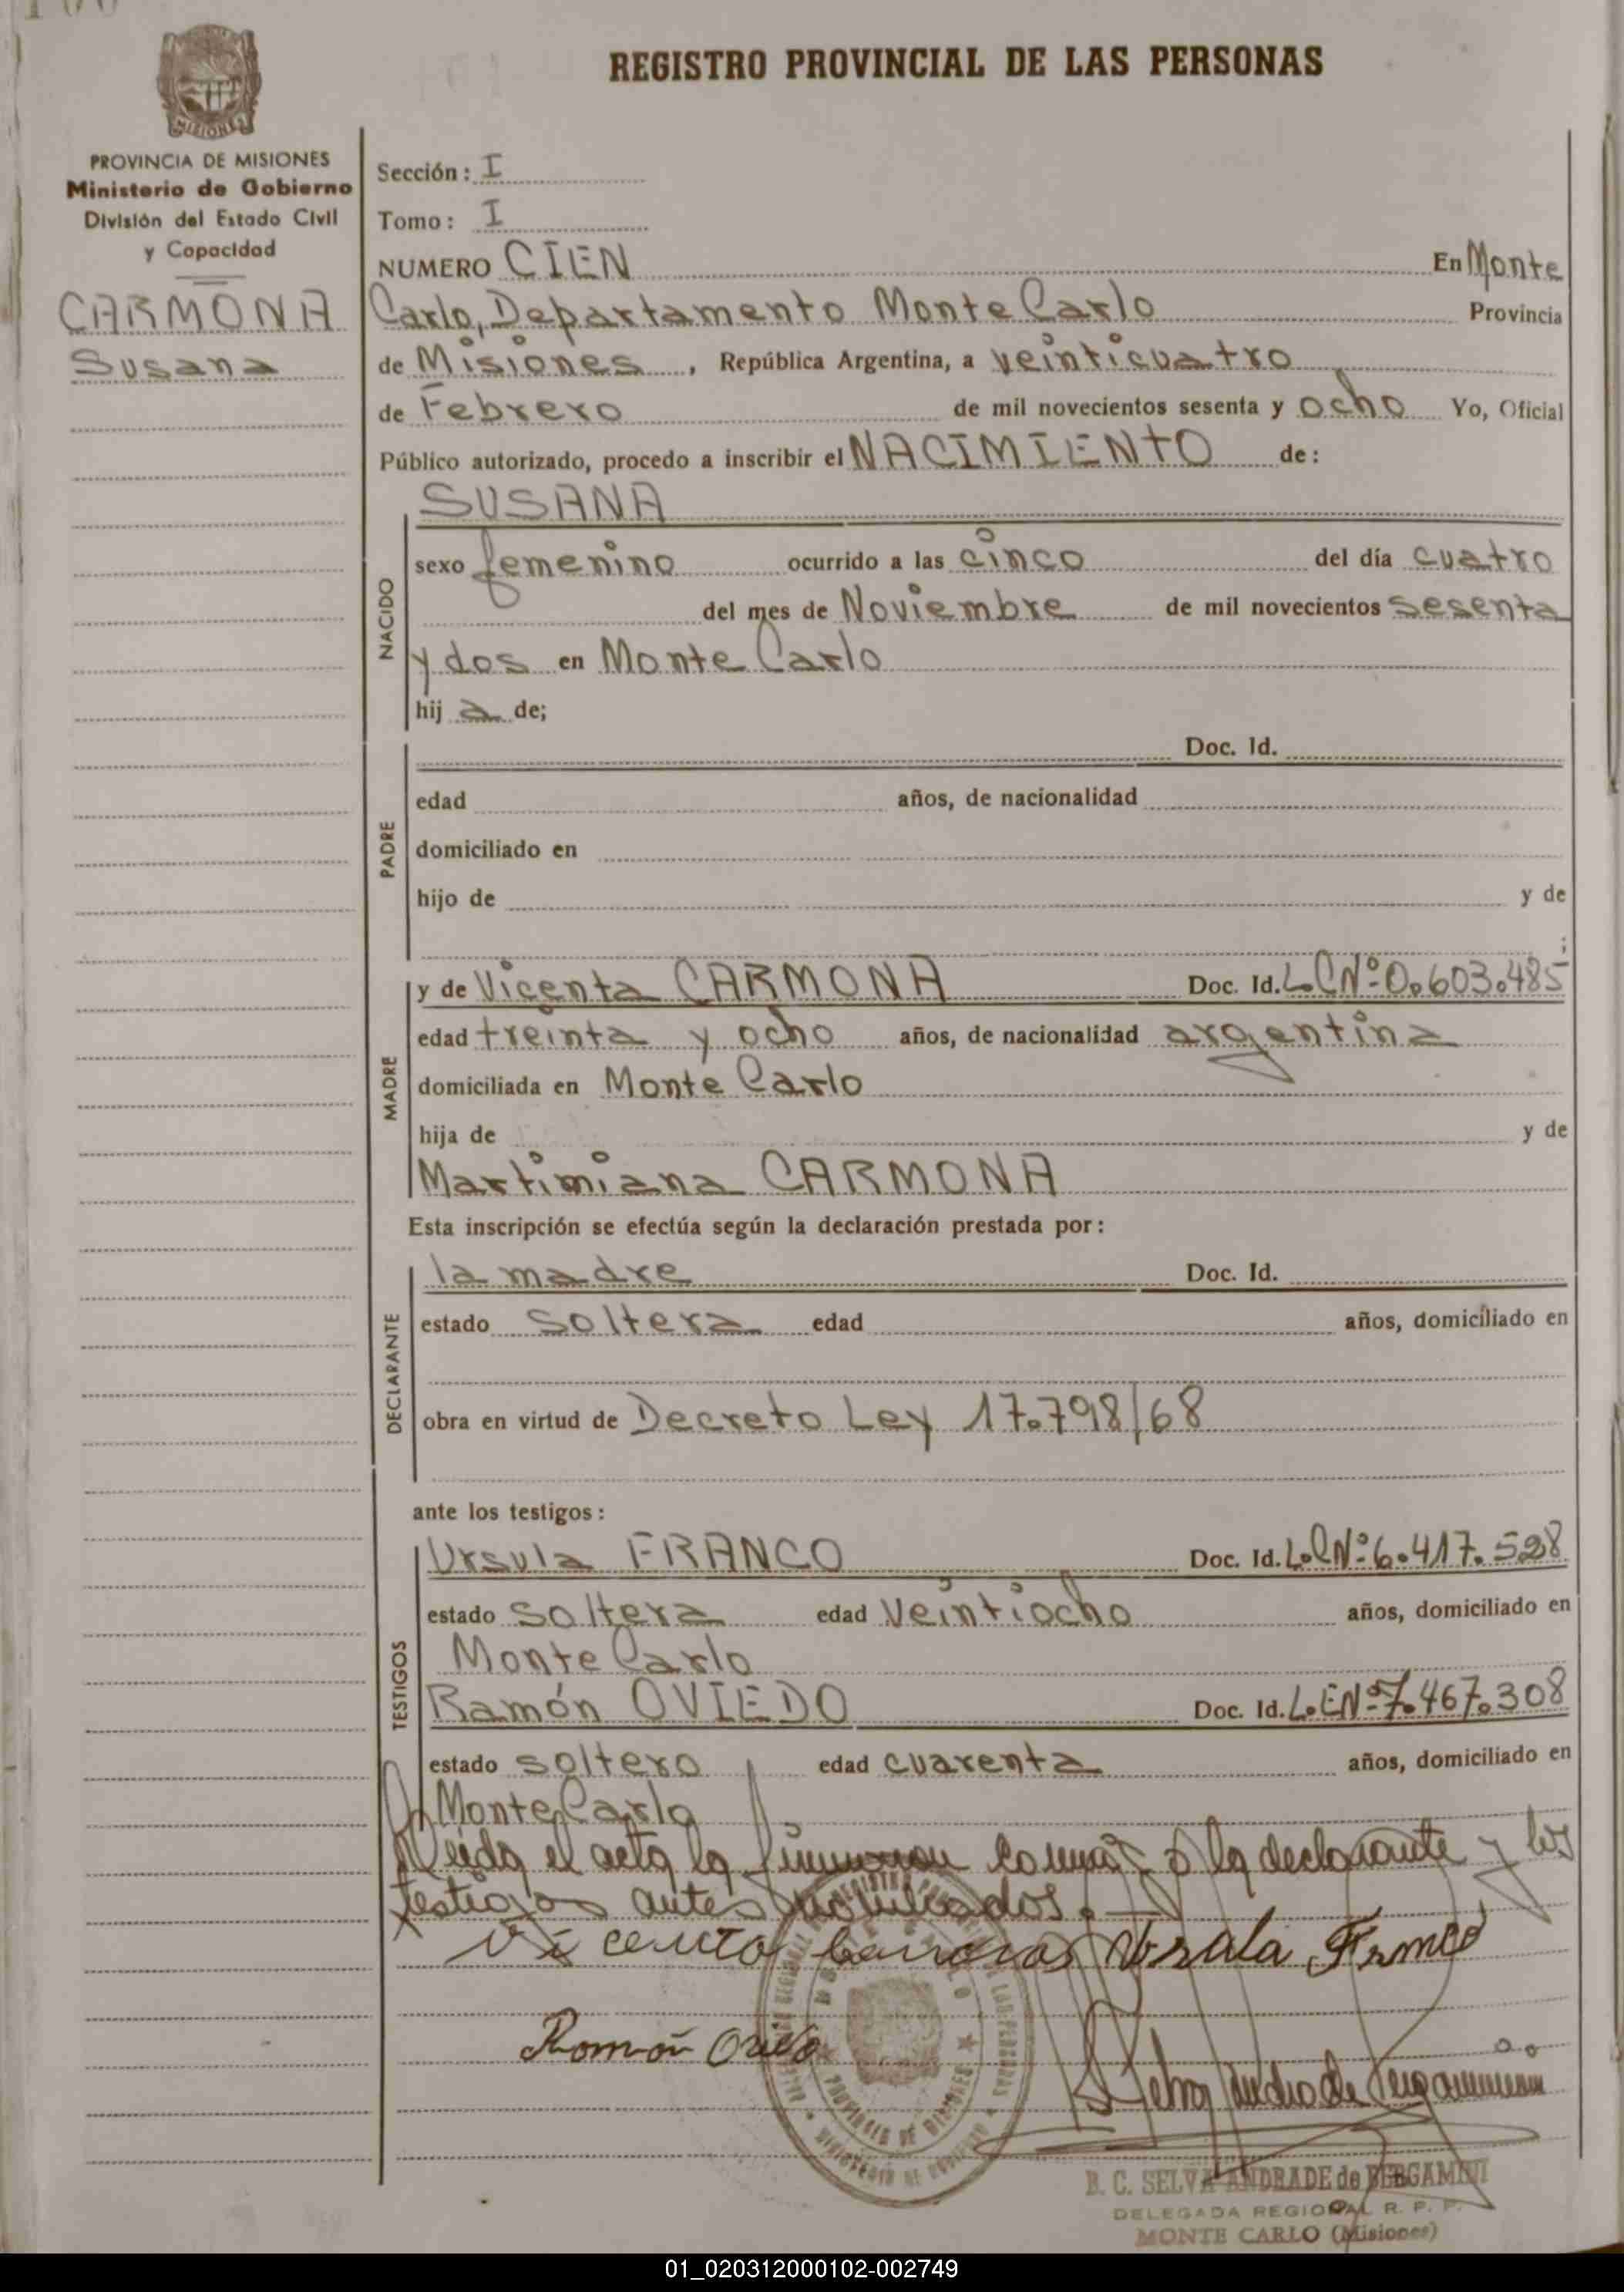 REGISTRO PROVINCIAL DE LAS PERSONAS
MISIONES
PROVINCIA DE MISIONES
Ministerio de Gobierno
División del Estado Civil
y Capacidad
CARMONA
Susana
Sección: I
Tomo: I
NUMERO CIEN En Monte
Carlo, Departamento Monte Carlo Provincia
de Misiones, República Argentina, a veinticuatro
de Febrero de mil novecientos sesenta y ocho Yo, Oficial
Público autorizado, procedo a inscribir el NACIMIENTO de:
NACIDO
SUSANA
sexo femenino ocurrido a las cinco del día cuatro
del mes de Noviembre de mil novecientos sesenta
y dos en Monte Carlo
hij a de;
PADRE
Doc. Id.
edad años, de nacionalidad
domiciliado en
hijo de y de
;
MADRE
y de Vicenta CARMONA Doc. Id. L.C.Nº 0.603.485
edad treinta y ocho años, de nacionalidad argentina
domiciliada en Monte Carlo
hija de y de
Martimiana CARMONA
Esta inscripción se efectúa según la declaración prestada por:
DECLARANTE
la madre Doc. Id.
estado soltera edad años, domiciliado en
obra en virtud de Decreto Ley 17.798/68
ante los testigos:
TESTIGOS
Ursula FRANCO Doc. Id. L.C.Nº 6.417.528
estado soltera edad veintiocho años, domiciliado en
Monte Carlo
Ramón OVIEDO Doc. Id. L.E.Nº 7.467.308
estado soltero edad cuarenta años, domiciliado en
Monte Carlo
Leída el acta la firman conmigo la declarante y los
testigos antes
Ursula Franco
Ramón
PROVINCIA DE MISIONES
MINISTERIO DE GOBIERNO
B. C. SELVA ANDRADE de BERGAMINI
DELEGADA REGIONAL R. P. P.
MONTE CARLO (Misiones)
01_020312000102-002749